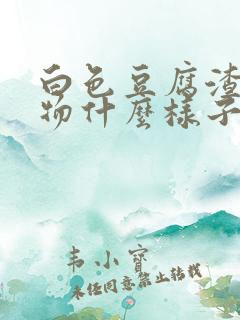 白色豆腐渣
物什麼樣子
韦小寳
未经同意禁止转载